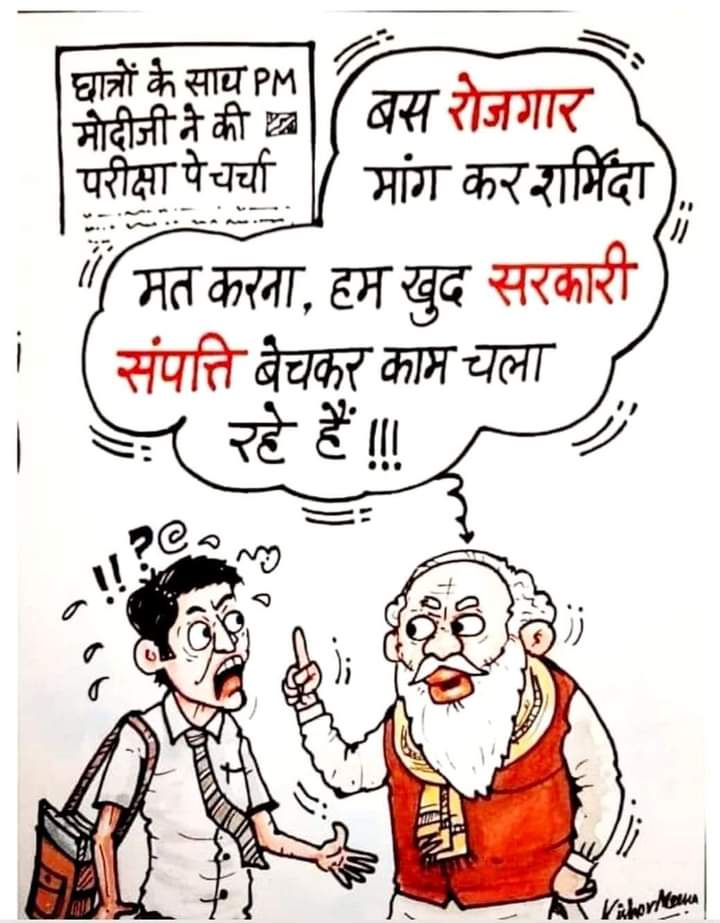 छात्रों के साथ PM
मोदीजी ने की
परीक्षा पे चर्चा
बस रोजगार
मांग कर शर्मिंदा
मत करना, हम खुद सरकारी
संपत्ति बेचकर काम चला
रहे हैं !!!
!!?@